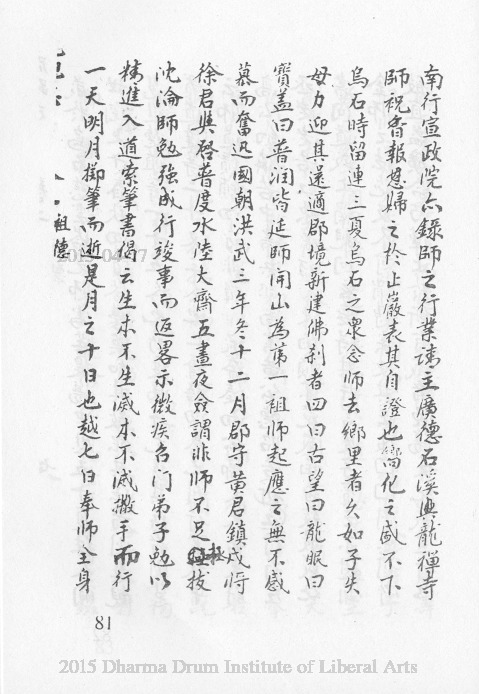 南行宣政院亦錄師之行業請主廣德石溪興龍禪寺
師祝香報恩歸之於止巖表其自證也嚮化之盛不下
烏石時留連三夏烏石之眾念師去鄉里者久如子失
母力迎其還適郡境新建佛剎者四曰古望曰龍眠曰
寶盖曰普潤皆延師開山為第一祖師起應之無不感
慕而奮迅國朝洪武三年冬十二月郡守黃君鎮戍將
徐君與啓普度水陸大齋五晝夜僉謂非師不足拯拔
沈淪師勉強成行竣事而返畧示微疾召門弟子勉以
精進入道索筆書偈云生本不生滅本不滅撒手而行
一天明月擲筆而逝是月之十日也越七日奉師全身
祖德
81
2015 Dharma Drum Institute of Liberal Arts